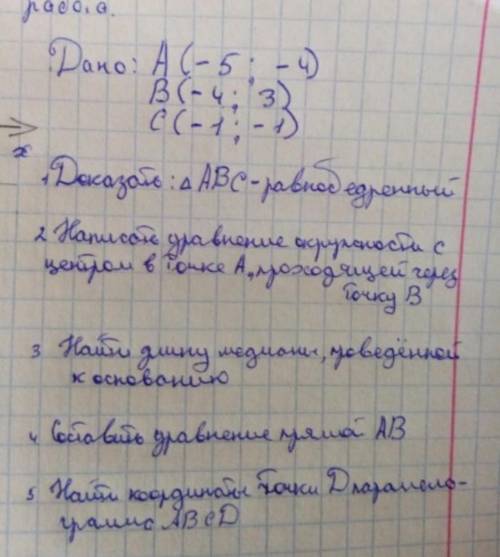 работа.
Дано: А (-5 ; -4)
В (-4; 3)
С (-1 ; -1)
x
1 Доказать: △ АВС - равнобедренный
2 Написать уравнение окружности с
центром в точке А, проходящей через
точку В
3 Найти длину медианы, проведённой
к основанию
4 Составить уравнение прямой АВ
5 Найти координаты точки D параллело-
грамма АВСD